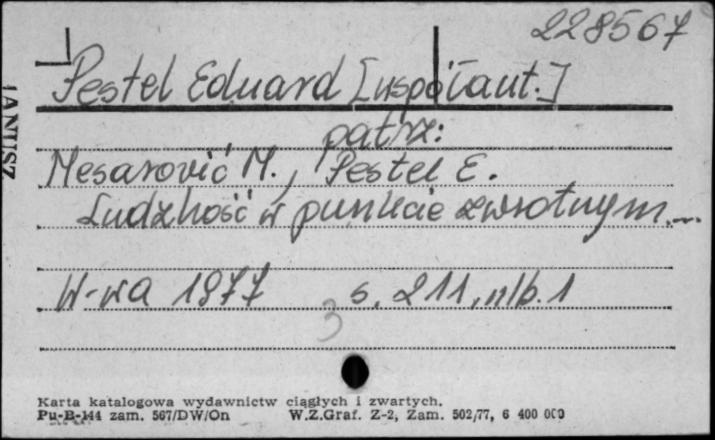 228567
Pestel Eduard [współaut.]
patrz:
Mesarović M., Pestel E.
Ludzkość w punkcie zwrotnym...
W-wa 1977 s. 211, nlb. 1
3
Karta katalogowa wydawnictw ciągłych i zwartych.
Pu-B-144 zam. 567/DW/On W.Z.Graf. Z-2, Zam. 502/77, 6 400 000
JANUSZ